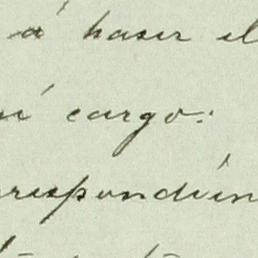 á haser el
mi cargo:
rrespondien